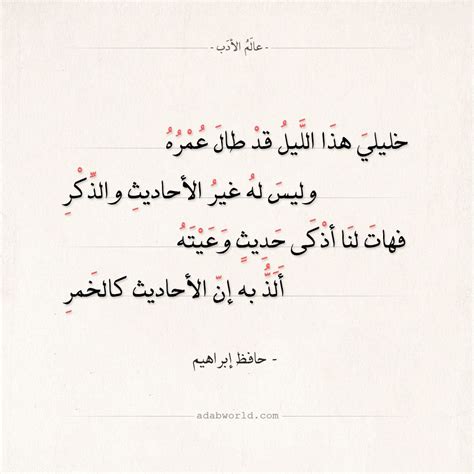 - عالَمُ الأدَب -
خليليَ هذَا اللَّيلُ قدْ طالَ عُمْرُهُ
وليسَ لهُ غيرُ الأحاديثِ والذِّكْرِ
فهاتَ لنَا أذْكَى حَدِيثٍ وَعَيْتَهُ
أَلَذُّ به إنّ الأحاديث كالخَمرِ
- حافظ إبراهيم
adabworld.com